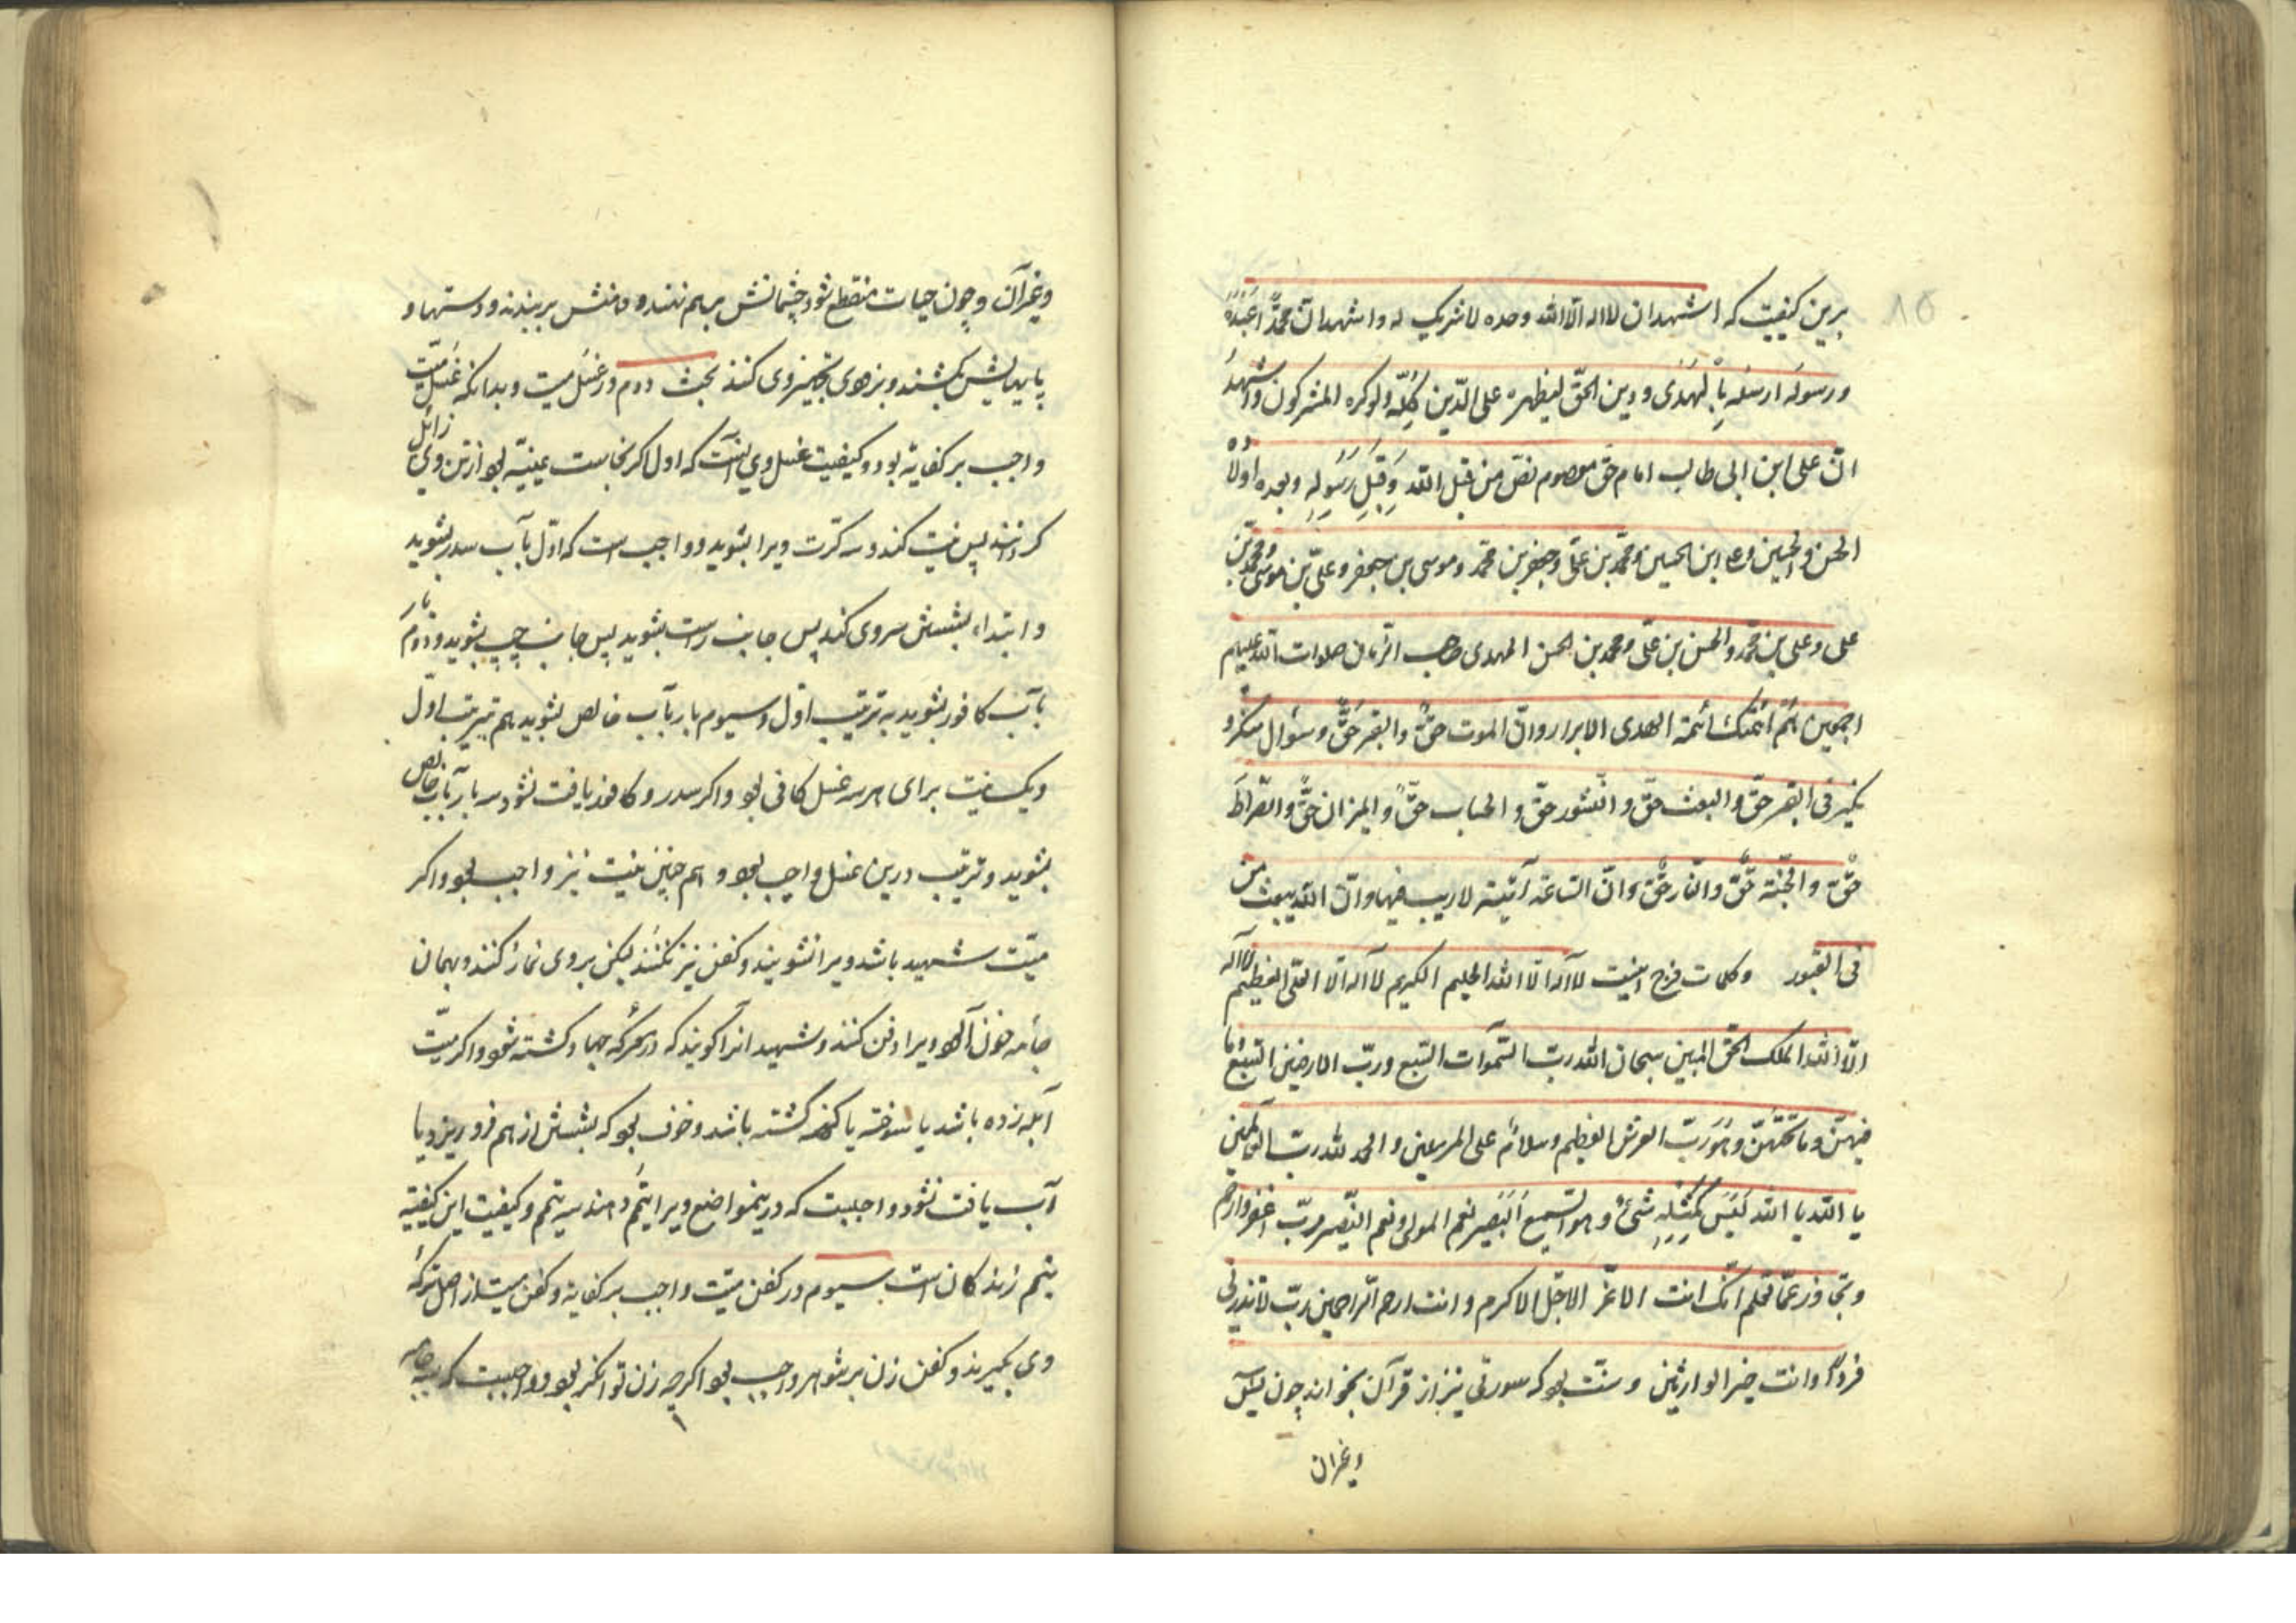 برین کیفیت که اشهد ان لا اله الا الله وحده لا شریک له و اشهد ان محمدًا عَبْدُهُ
و رسولَه ارسله بِالْهُدَی و دین الحقّ لیظهره علی الدّین کُلِّه ولو کره المشرکون و اشهدُ
انّ علی ابن ابی طالب امام حق معصوم نصّ من قبل الله وَ قِبَلِ رَسُولِهِ و بعده اولادُه
الحسن والحسین و علی ابن الحسین و محمّد بن علیّ و جعفر بن محمّد و موسی بن جعفر و علیّ بن موسی و محمد بن
علی و علی بن محمّد و الحسن بن علیّ و محمد بن الحسن المهدی صاحب الزمان صلوات الله علیهم
اجمعین هُم ائمّتک ائمة الهدی الابرار و انّ الموت حقٌّ و القبر حَقٌّ و سؤال منکر و
نکیر فی القبر حقّ و البعث حقّ و النّشور حقّ و الحساب حقٌّ و المیزان حقٌّ و الصّراطَ
حقّ و الجنّة حقّ و النّار حقّ و انّ السّاعة آتیة لا ریب فیها و انّ الله یبعث من
فی القبور و کلمات فرج اینست لا اله الا الله الحلیم الکریم لا اله الا الله العلیّ العظیم لا اله
الّا الله الملک الحقّ المبین سبحان الله ربّ السّموات السّبع و ربّ الارضین السّبع و ما
فیهنّ و ما تحتهُنّ و هُوَ ربّ العرش العظیم و سلامٌ علی المرسلین و الحمد لله ربّ العالمین
یا الله یا الله لَیْسَ کَمِثْلِهِ شیءٌ و هو السّمیع البَصیر نعم المولی و نعم النّصیر ربّ اغفر و ارحم
و تجاوز عمّا تعلم انّک انت الاعزّ الاجلّ الاکرم و انت ارحم الرّاحمین ربّ لا تذرنی
فردًا و انت خیر الوارثین و سنّت بود که سورتی نیز از قرآن بخوانند چون یٰسٓ
و غیرآن
و غیرآن و چون حیات منقطع شود چشمانش برهم نهند و دهنش بر بندند و دستها و
پایهایش بکشند و بزودی تجهیز وی کنند بحث دوم در غسل میت و بدانکه غسل میّت
واجب بر کفایه بود و کیفیت غسل وی آنست که اول اگر نجاست عینیّه بود از تن وی زائل
کردانند پس نیت کند و سه کرّت ویرا بشوید و واجب است که اوّل بآب سدر بشوید
و ابتداء بشستن سر وی کند پس جانب راست بشوید پس جانب چپ بشوید و دوم بار
بآب کافور بشوید به ترتیب اوّل و سیوم بار بآب خالص بشوید هم بترتیب اوّل
و یک نیت برای هر سه غسل کافی بود و اگر سدر و کافور یافت نشود سه بار بآب خالص
بشوید و ترتیب درین غسل واجب بود و هم چنین نیت نیز واجب بود و اگر
میّت شهید باشد ویرا نشویند و کفن نیز نکنند لیکن بر وی نماز کنند و بهمان
جامه خون آلود ویرا دفن کنند و شهید آنرا گویند که در معرکه جهاد کشته شود و اگر میّت
آبله زده باشد یا سوخته یا کهنه گشته باشد و خوف بود که بشستن از هم فرو ریزد یا
آب یافت نشود واجبست که درینمواضع ویرا تیمّم دهند سه تیمم و کیفیت این کیفیّة
تیمم زندکان است سیوم در کفن میّت واجب بر کفایه و کفن میت از اصل ترکه
وی بگیرند و کفن زن بر شوهر واجب بود اگرچه زن توانگر بود و واجبست که سه جامه